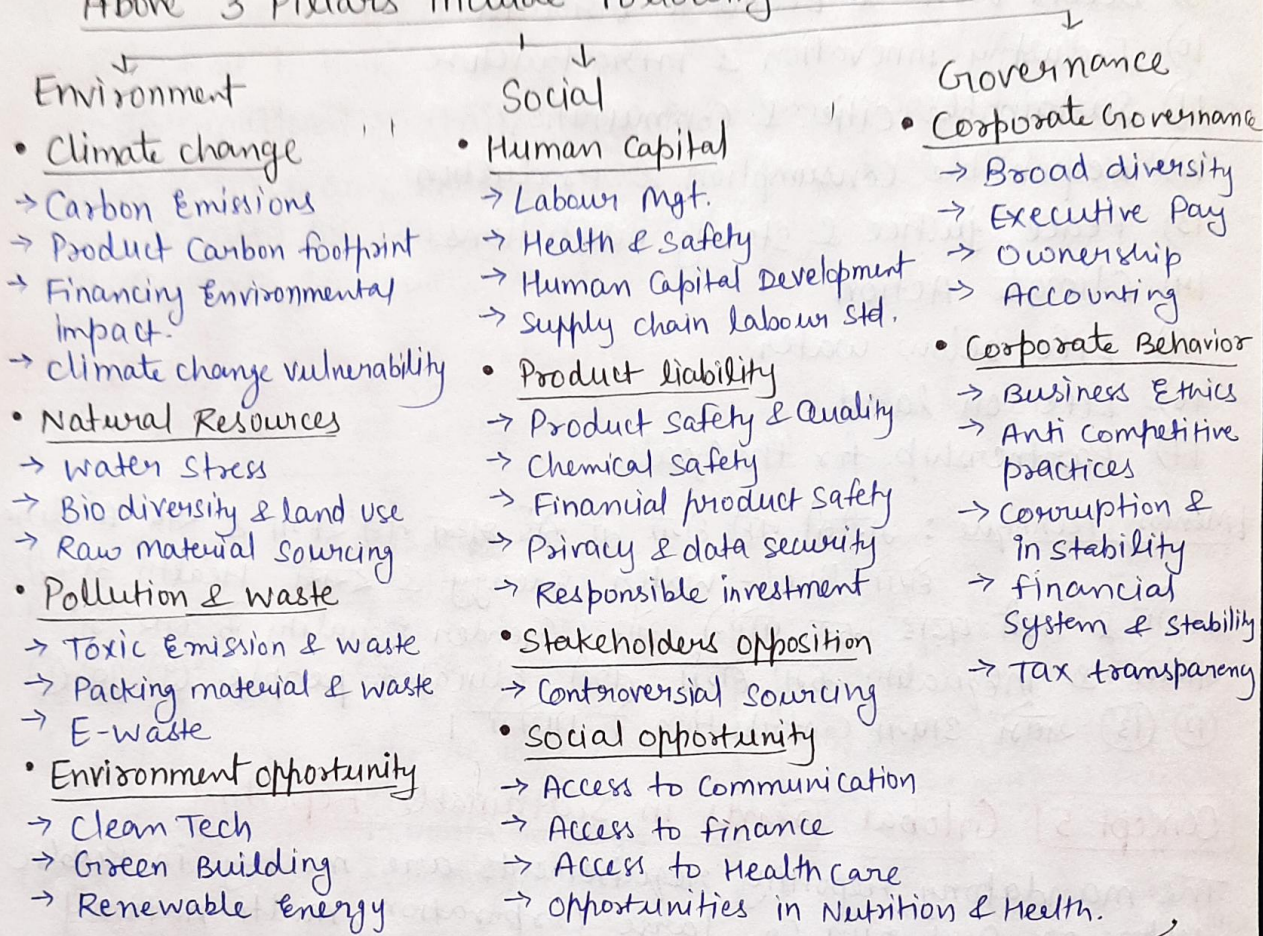 Above 3 Pillars include following
Environment
• Climate change
→ Carbon Emissions
→ Product Carbon footprint
→ Financing Environmental
Impact.
→ Climate change vulnerability
• Natural Resources
→ Water Stress
→ Bio diversity & land use
→ Raw material sourcing
• Pollution & waste
→ Toxic Emission & waste
→ Packing material & waste
→ E-waste
• Environment opportunity
→ Clean Tech
→ Green Building
→ Renewable Energy
Social
• Human Capital
→ Labour Mgt.
→ Health & safety
→ Human Capital Development
→ Supply chain labour std.
• Product liability
→ Product Safety & Quality
→ Chemical safety
→ Financial product safety
→ Privacy & data security
→ Responsible investment
• Stakeholders opposition
→ Controversial sourcing
• Social opportunity
→ Access to Communication
→ Access to finance
→ Access to Health Care
→ Opportunities in Nutrition & Heelth.
Governance
• Corporate Governanc
→ Broad diversity
→ Executive Pay
→ Ownership
→ Accounting
• Corporate Behavior
→ Business Ethics
→ Anti Competitive
practices
→ Corruption &
in stability
→ financial
System & Stability
→ Tax transpareny